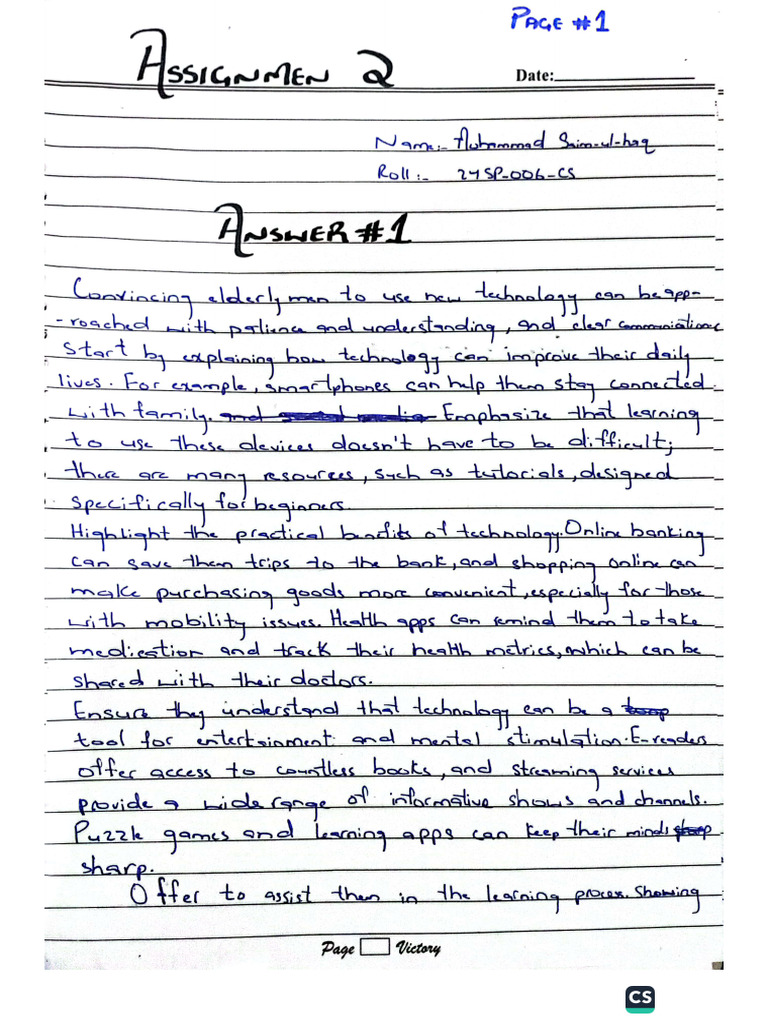 PAGE #1
ASSIGNMEN 2
Date:
Name:- Muhammad Saim-ul-haq
Roll:- 24SP-006-CS
ANSWER #1
Convincing elderly men to use new technology can be app-
-roached with patience and understanding, and clear communication.
Start by explaining how technology can improve their daily
lives. For example, smartphones can help them stay connected
with family. Emphasize that learning
to use these devices doesn't have to be difficult;
there are many resources, such as tutorials, designed
specifically for beginners.
Highlight the practical benefits of technology. Online banking
can save them trips to the bank, and shopping online can
make purchasing goods more convenient, especially for those
with mobility issues. Health apps can remind them to take
medication and track their health metrics, which can be
shared with their doctors.
Ensure they understand that technology can be a
tool for entertainment and mental stimulation. E-readers
offer access to countless books, and streaming services
provide a wide range of informative shows and channels.
Puzzle games and learning apps can keep their minds
sharp.
Offer to assist them in the learning proces. Showing
Page Victory
CS